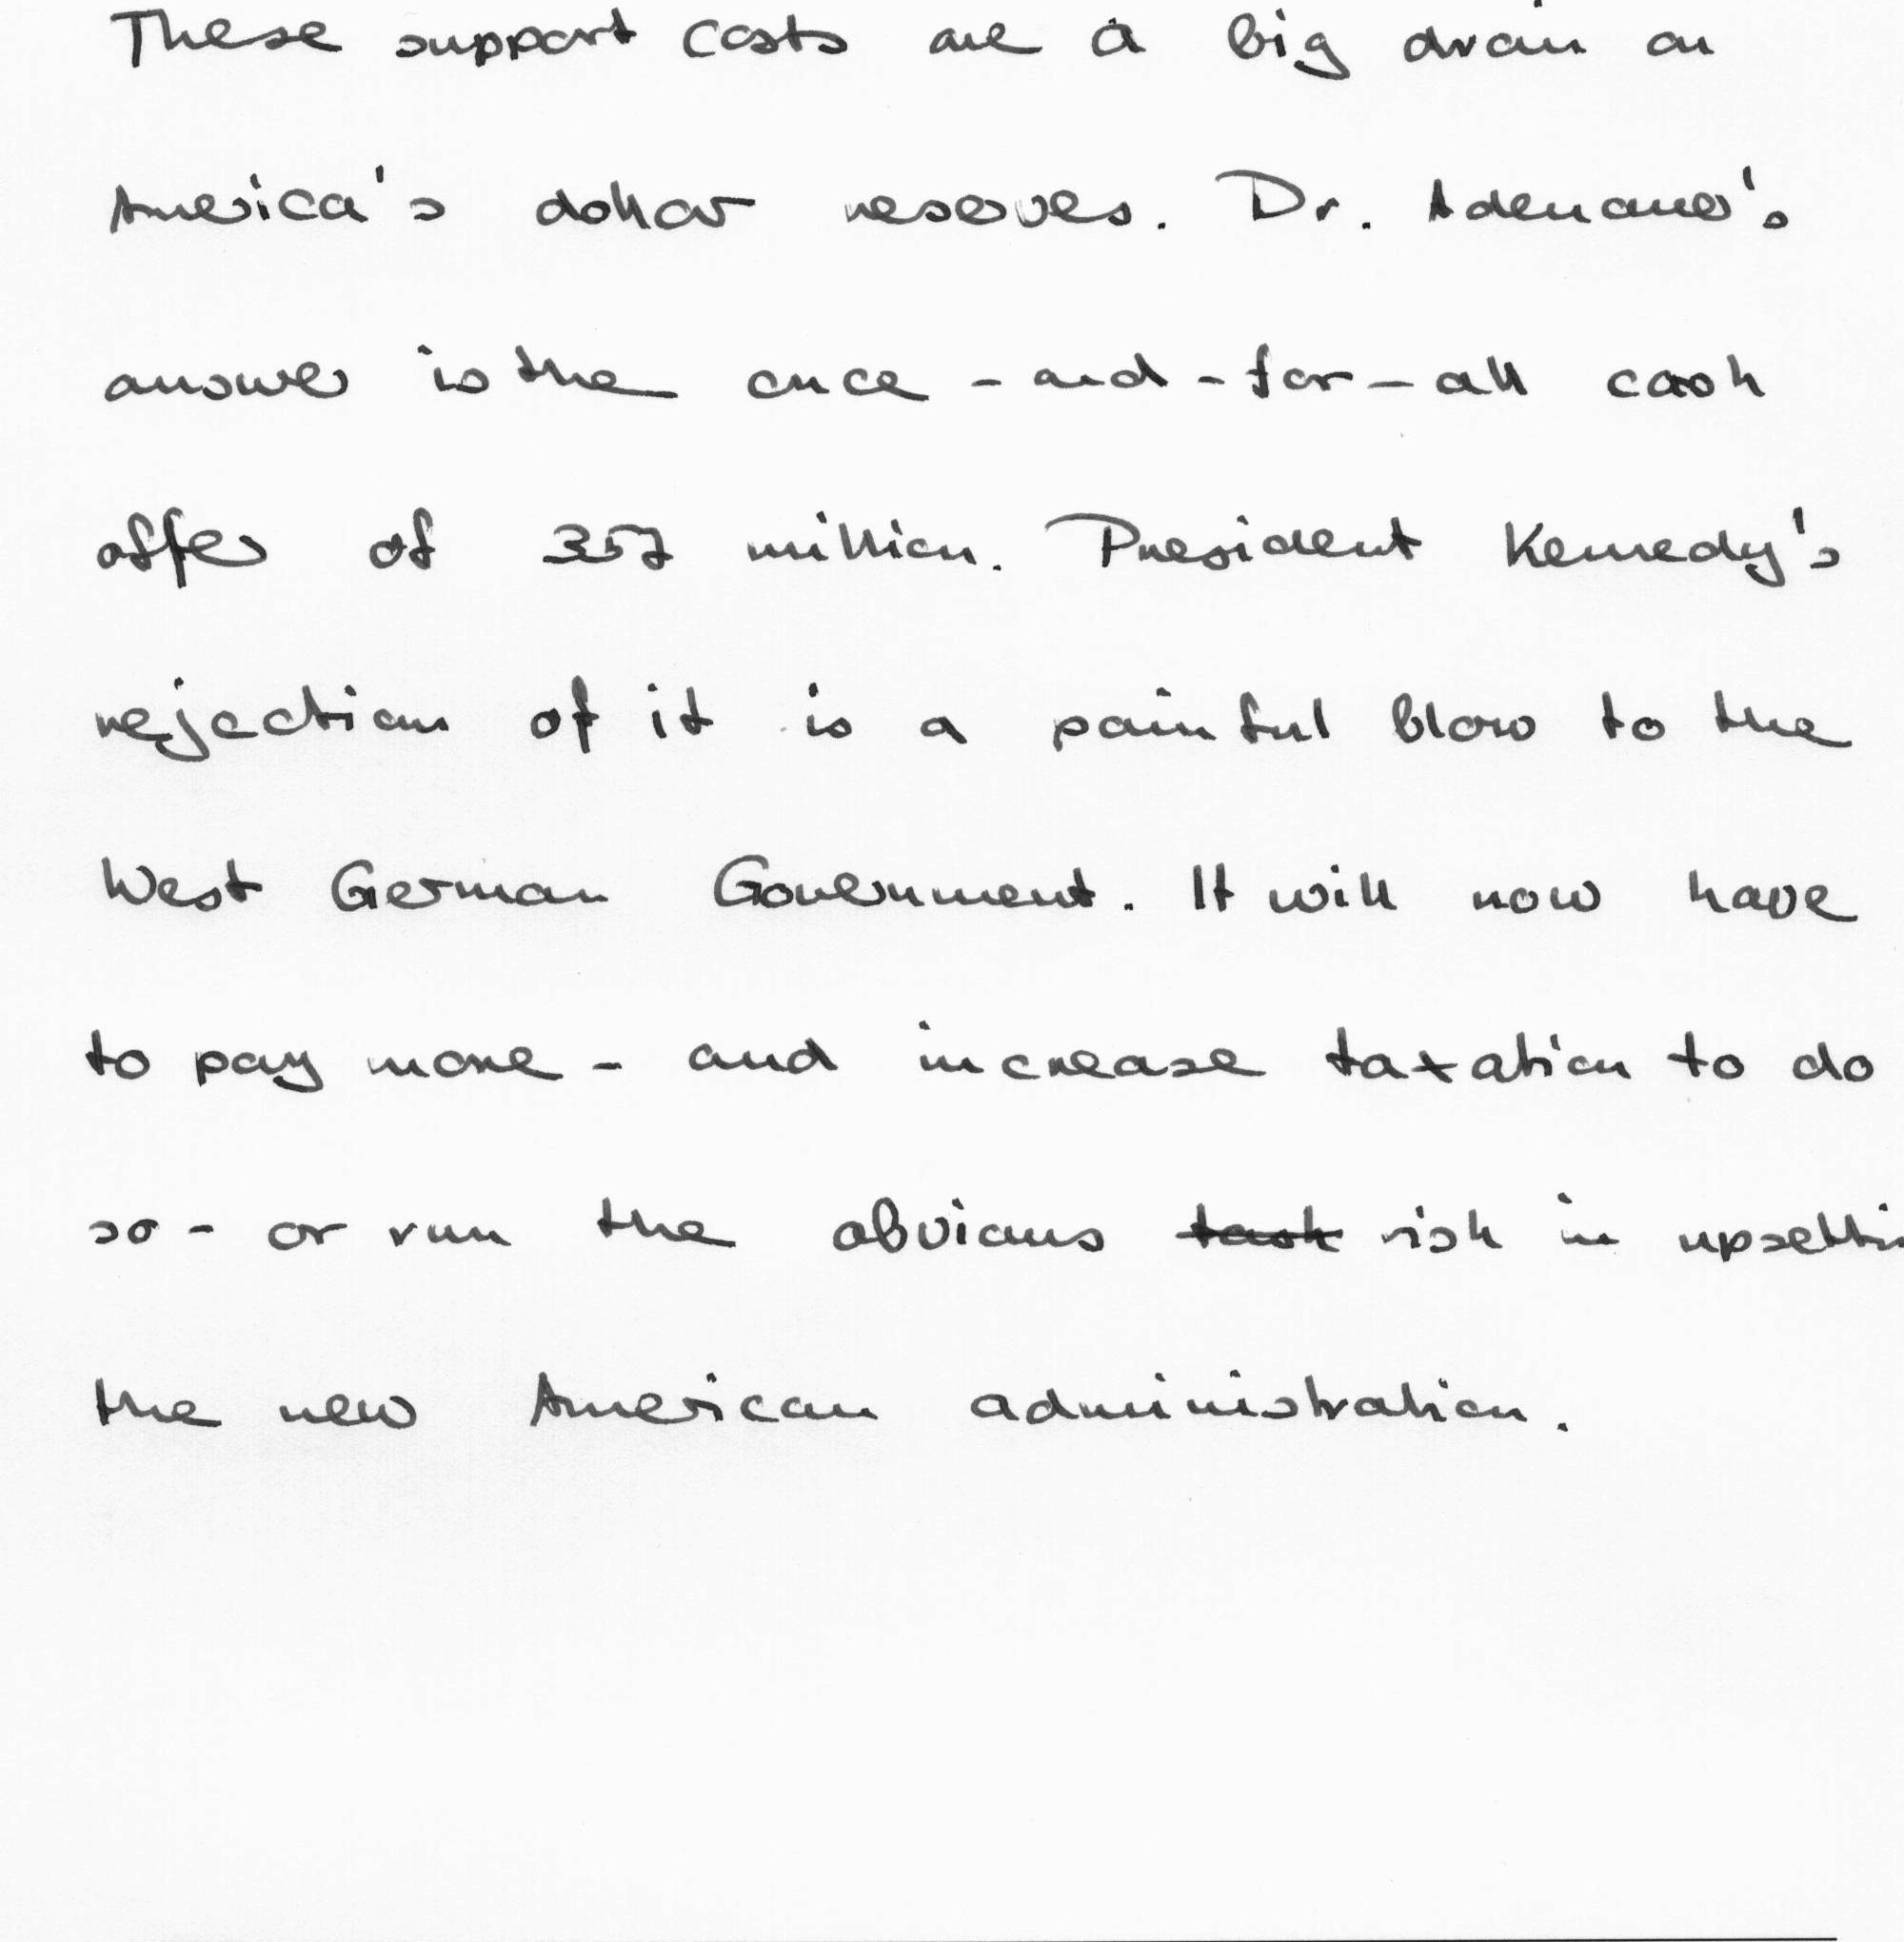 These support costs are a big drain on
America's dollar reserves. Dr. Adenauer's
answer is the once-and-for-all cash
offer of 357 million. President Kennedy's
rejection of it is a painful blow to the
West German Government. It will now have
to pay more - and increase taxation to do
so - or run the obvious task risk in upsettin
the new American administration.